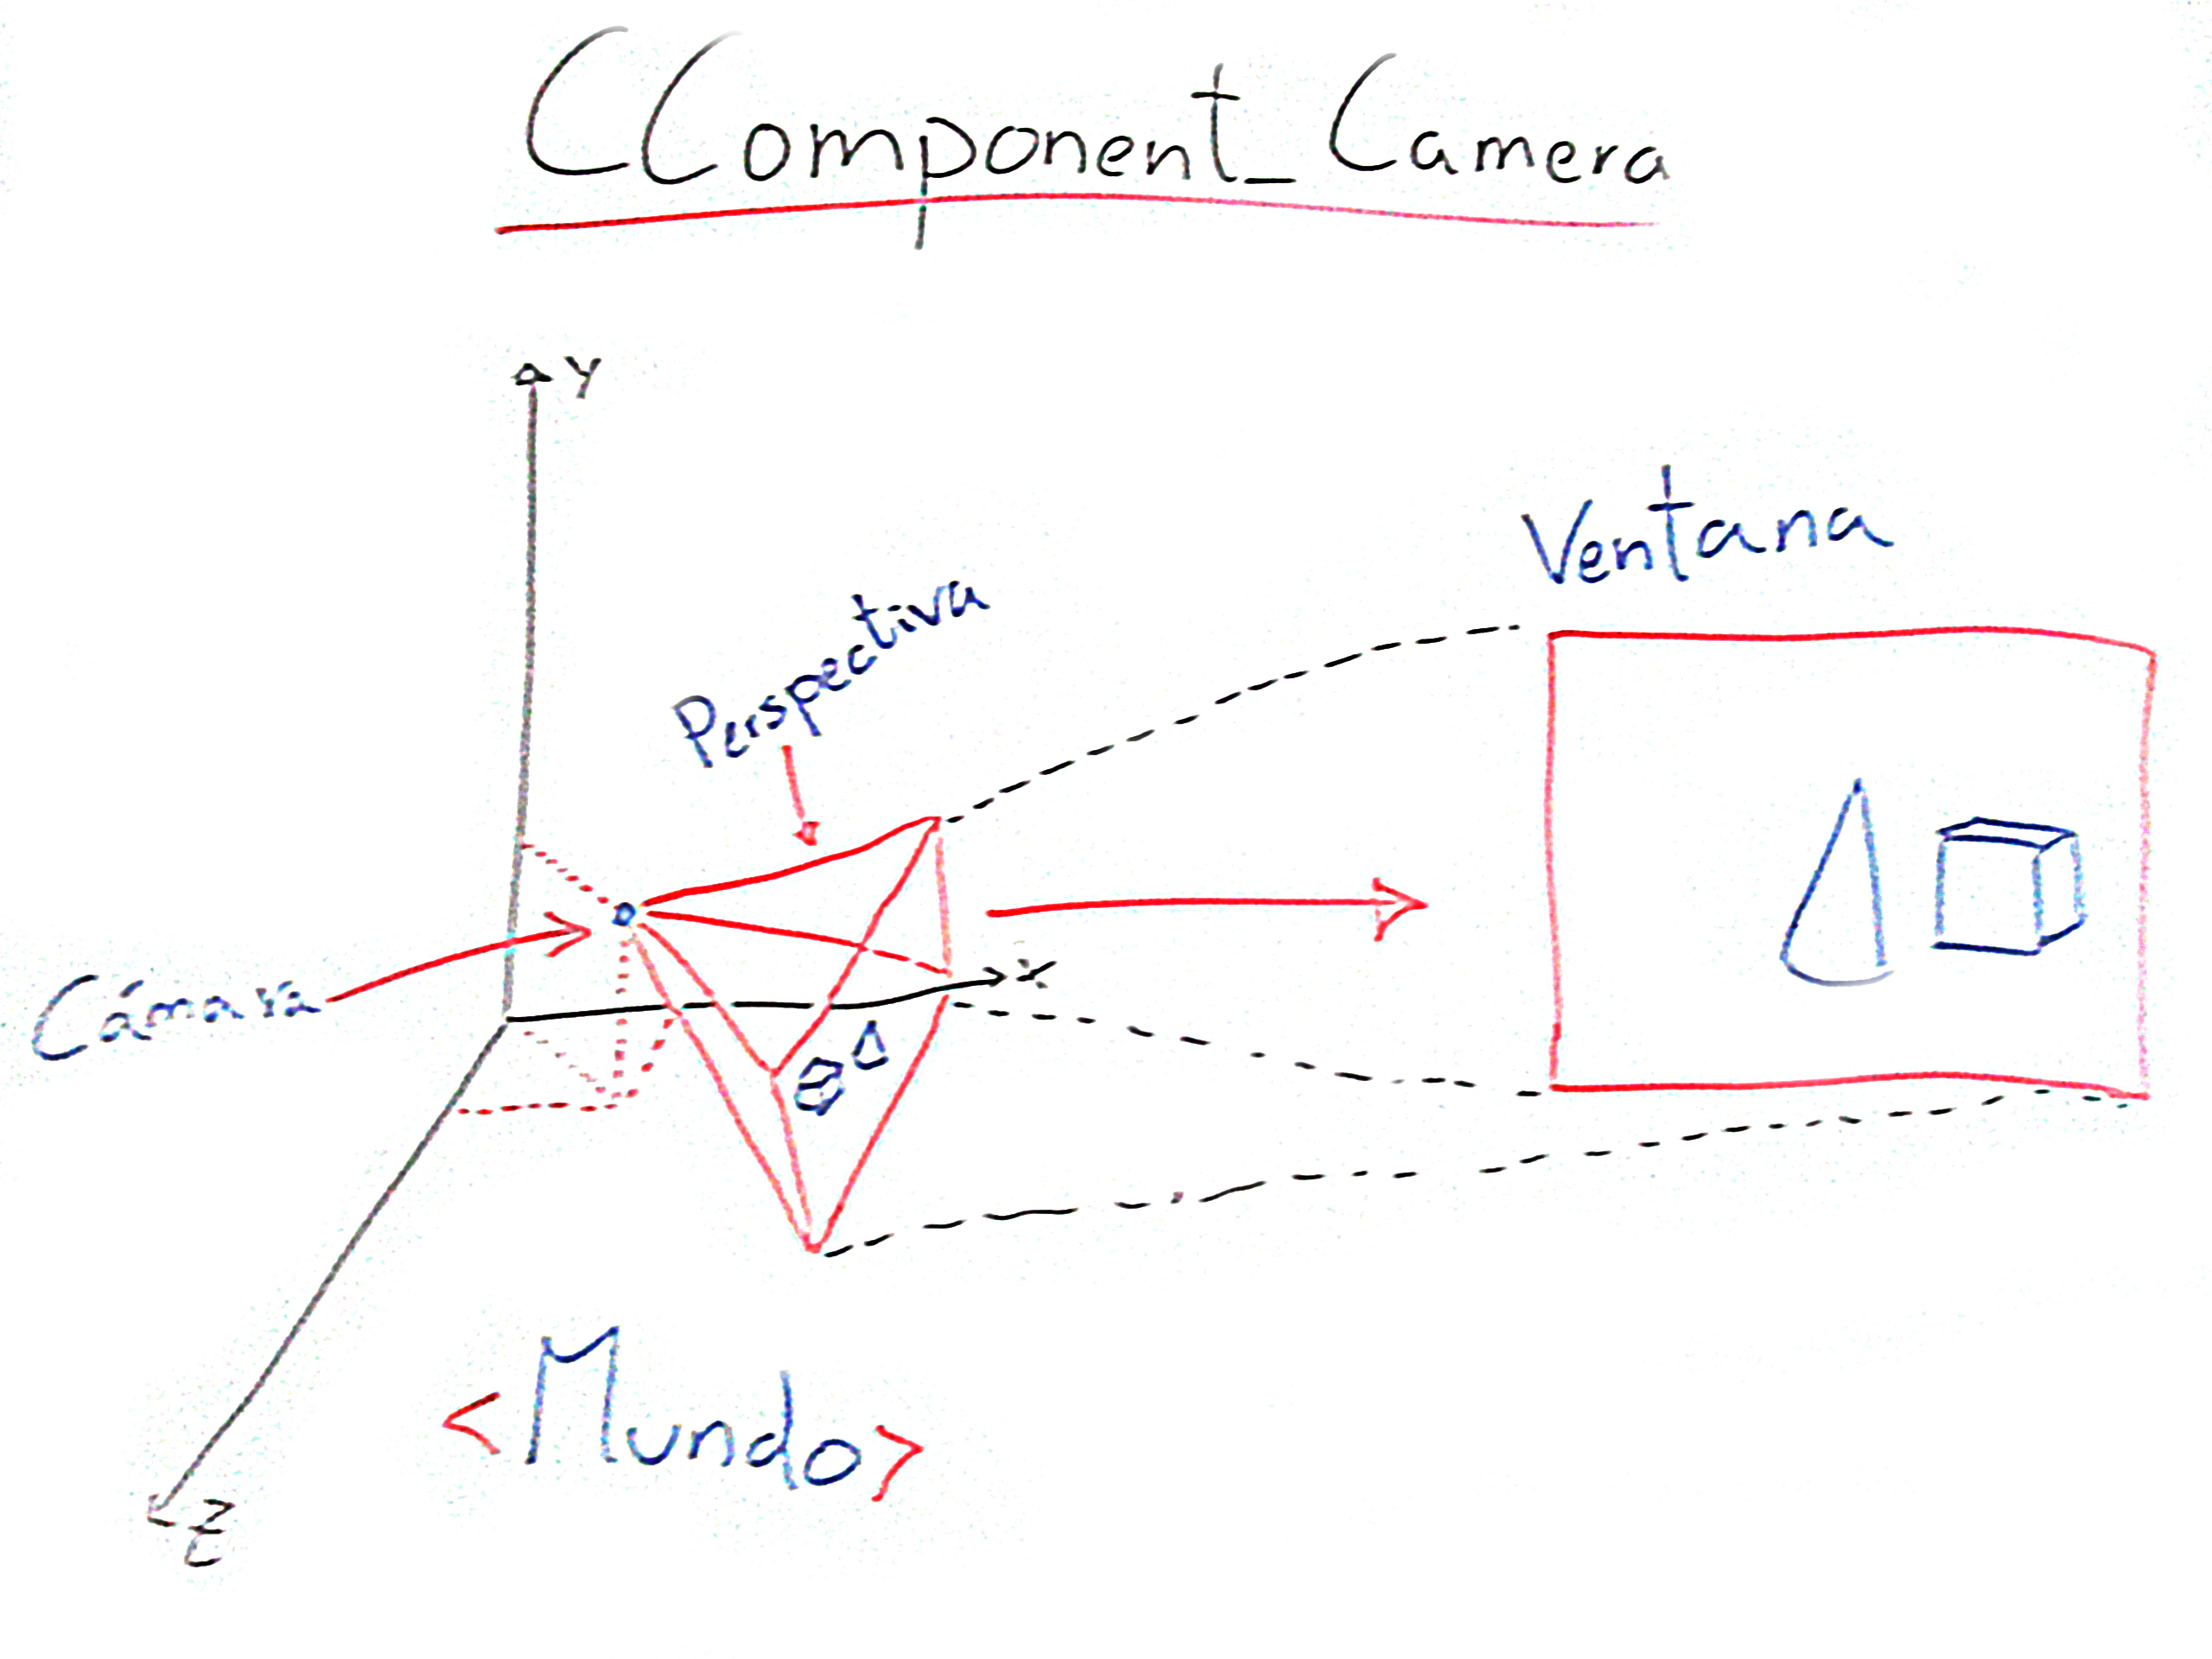 CComponent_Camera
Y
Ventana
Perspectiva
X
Cámara
<Mundo>
Z